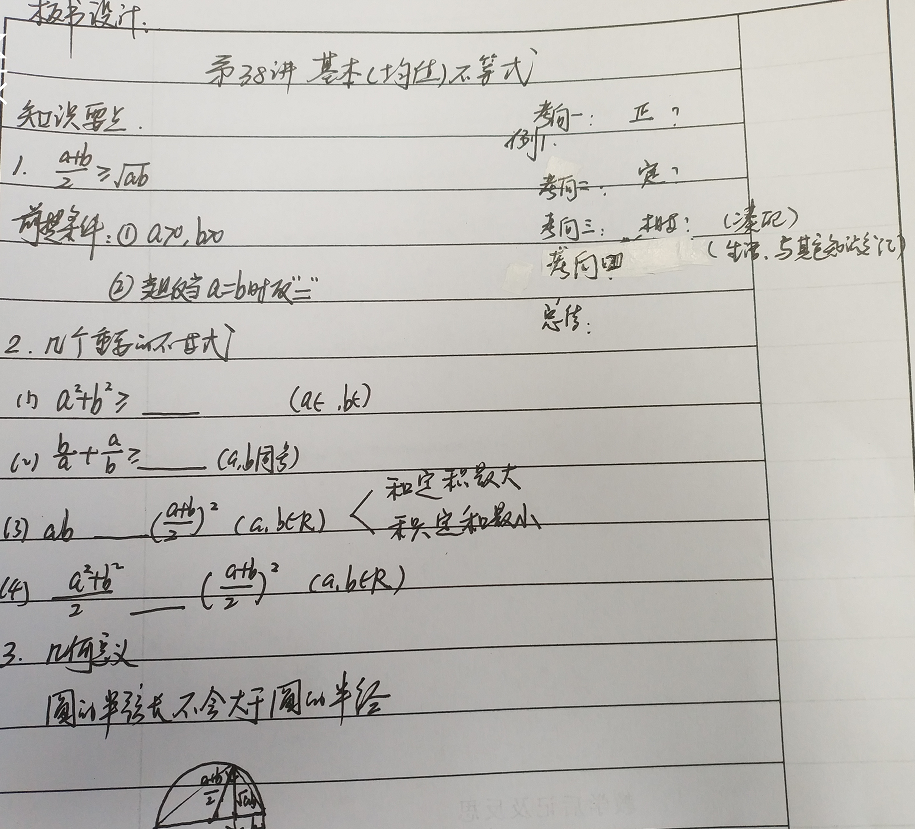 板书设计:
第38讲 基本(均值)不等式
知识要点.
1. (a+b)/2 ≥ √ab
前提条件: ① a>0, b>0
② 当且仅当 a=b时取"="
2. 几个重要的不等式
(1) a²+b² ≥ ____ (a∈ ,b∈)
(2) b/a + a/b ≥ ____ (a,b同号)
(3) ab ____ ((a+b)/2)² (a,b∈R)
和定积最大
积定和最小
(4) (a²+b²)/2 ____ ((a+b)/2)² (a,b∈R)
3. 几何意义
圆的半弦长不会大于圆的半径
(a+b)/2
√ab
考向一: 正?
例1.
考向二: 定?
考向三: 相等? (凑配)
考向四 (生活、与其它知识交汇)
总结: